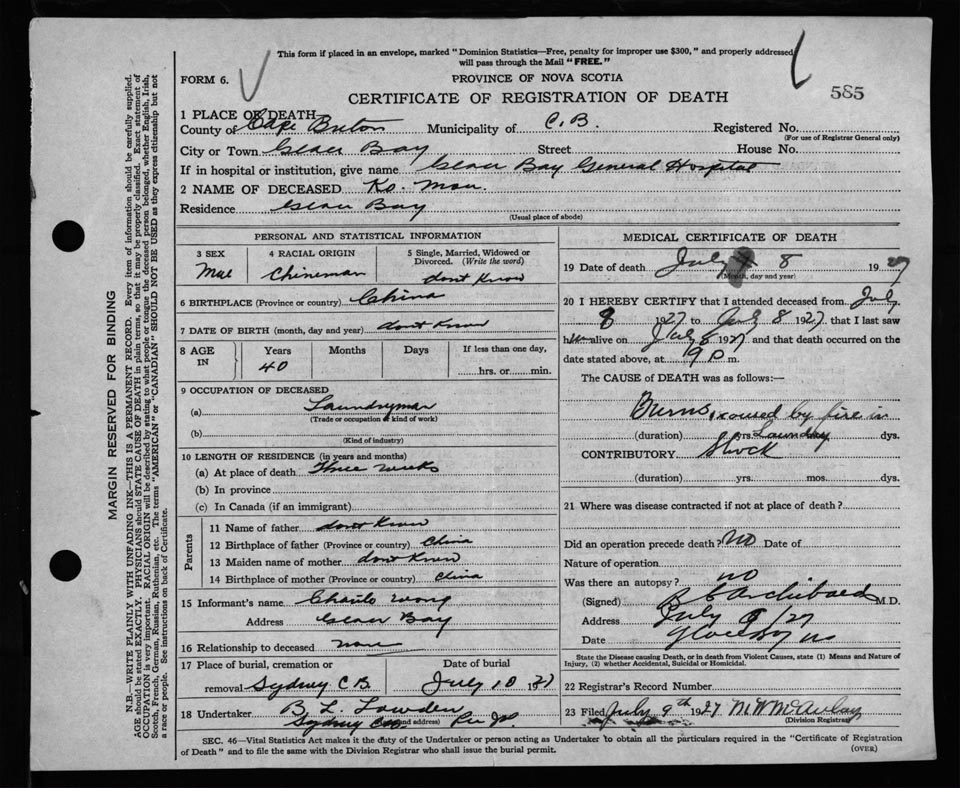 This form if placed in an envelope, marked "Dominion Statistics—Free, penalty for improper use $300," and properly addressed
will pass through the Mail "FREE."
FORM 6.
PROVINCE OF NOVA SCOTIA
CERTIFICATE OF REGISTRATION OF DEATH
585
1 PLACE OF DEATH
County of Cape Breton Municipality of C.B. Registered No.
(For use of Registrar General only)
City or Town Glace Bay Street House No.
If in hospital or institution, give name Glace Bay General Hospital
2 NAME OF DECEASED Ko. Mou.
Residence Glace Bay
(Usual place of abode)
PERSONAL AND STATISTICAL INFORMATION
3 SEX
4 RACIAL ORIGIN
5 Single, Married, Widowed or
Divorced. (Write the word)
Chineman
dont Know
6 BIRTHPLACE (Province or country) China
7 DATE OF BIRTH (month, day and year) dont Know
8 AGE
IN
Years
Months
Days
If less than one day,
40
hrs. or min.
9 OCCUPATION OF DECEASED
(a) Laundryman
(Trade or occupation or kind of work)
(b)
(Kind of industry)
10 LENGTH OF RESIDENCE (in years and months)
(a) At place of death Three weeks
(b) In province
(c) In Canada (if an immigrant)
Parents
11 Name of father dont Know
12 Birthplace of father (Province or country) China
13 Maiden name of mother dont Know
14 Birthplace of mother (Province or country) China
15 Informant's name Charls Wong
Address Glace Bay
16 Relationship to deceased none
17 Place of burial, cremation or
Date of burial
removal Sydney C B. July 10 1927
18 Undertaker B. L. Lowden
Sydney (and address)
MEDICAL CERTIFICATE OF DEATH
19 Date of death July 8 1927
(Month, day and year)
20 I HEREBY CERTIFY that I attended deceased from July
8 1927 to July 8 1927 that I last saw
him alive on July 8 1927 and that death occurred on the
date stated above, at 9 p m.
The CAUSE of DEATH was as follows:—
Burns, caused by fire in
(duration) yrs. Laundry dys.
CONTRIBUTORY Shock
(duration) yrs. mos. dys.
21 Where was disease contracted if not at place of death?
Did an operation precede death? No Date of
Nature of operation
Was there an autopsy? no
(Signed) Archibald M.D.
Address July 9/27
Date Glace Bay NS
State the Disease causing Death, or in death from Violent Causes, state (1) Means and Nature of
Injury, (2) whether Accidental, Suicidal or Homicidal.
22 Registrar's Record Number
23 Filed July 9th 1927 M W McAulay
(Division Registrar)
SEC. 46—Vital Statistics Act makes it the duty of the Undertaker or person acting as Undertaker to obtain all the particulars required in the "Certificate of Registration
of Death" and to file the same with the Division Registrar who shall issue the burial permit.
(OVER)
MARGIN RESERVED FOR BINDING
N.B.—WRITE PLAINLY WITH UNFADING INK—THIS IS A PERMANENT RECORD. Every item of information should be carefully supplied.
AGE should be stated EXACTLY. PHYSICIANS should STATE CAUSE OF DEATH in plain terms, so that it may be properly classified. Exact statement of
OCCUPATION is very important. RACIAL ORIGIN will be described by stating to what people or tongue the deceased person belonged, whether English, Irish,
Scotch, French, German, Russian, Ruthenian, etc. The terms "AMERICAN" or "CANADIAN" SHOULD NOT BE USED as they express citizenship but not
a race or people. See instructions on back of Certificate.